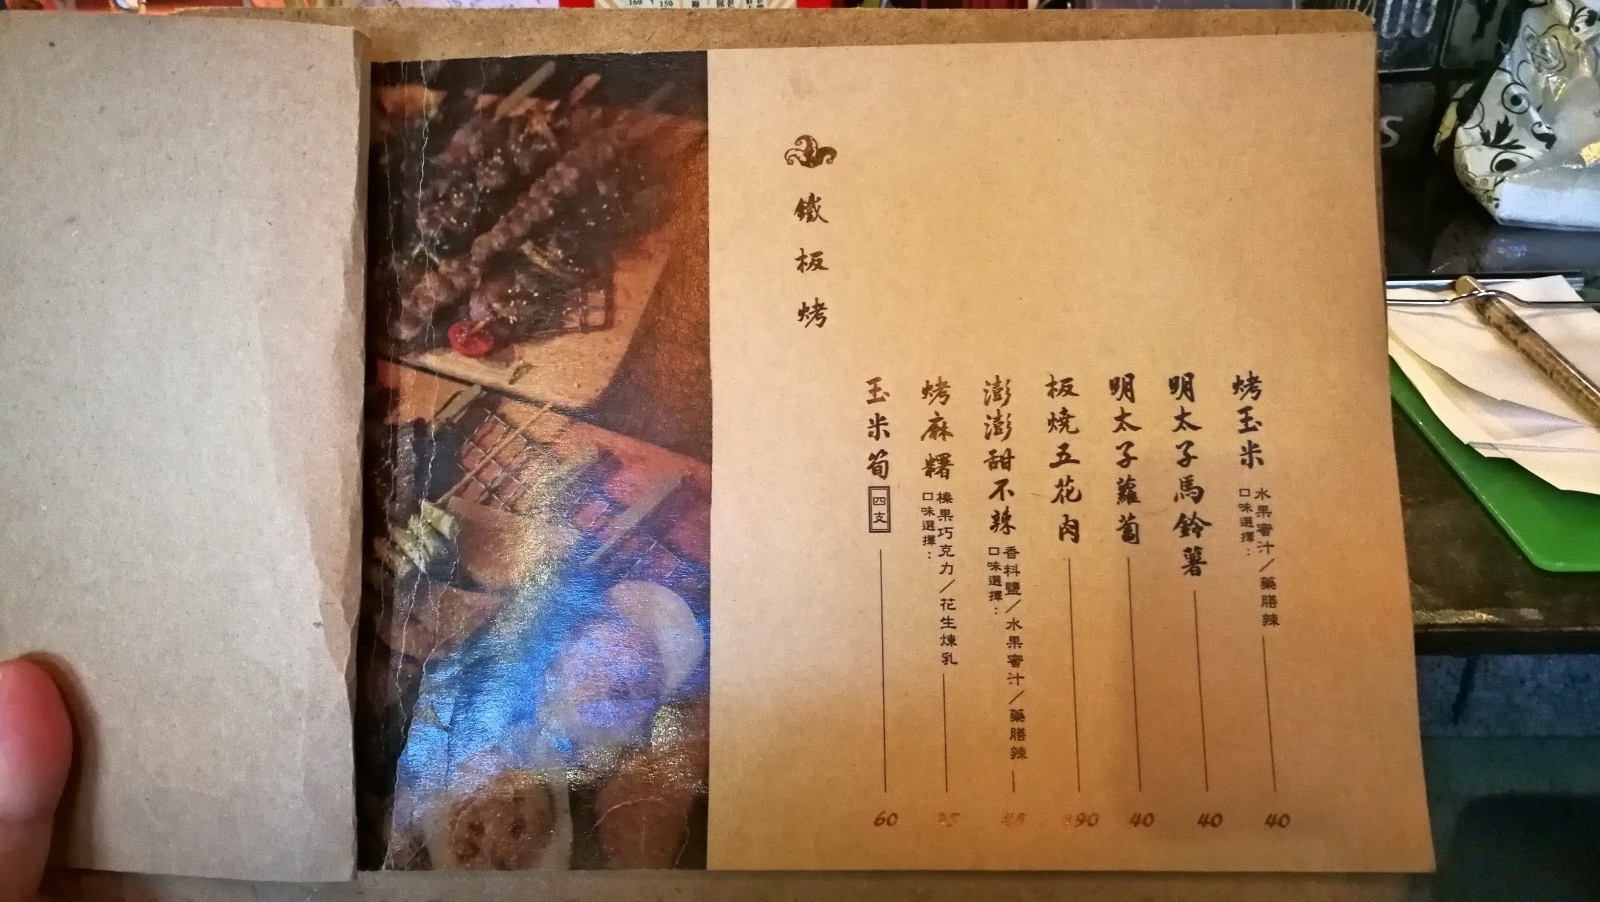 160
150
鐵板烤
烤玉米
口味選擇：
水果蜜汁／藥膳辣
40
明太子馬鈴薯
40
明太子蘿蔔
40
板燒五花肉
澎澎甜不辣
口味選擇：
香料鹽／水果蜜汁／藥膳辣
烤麻糬
口味選擇：
榛果巧克力／花生煉乳
玉米筍
四支
60